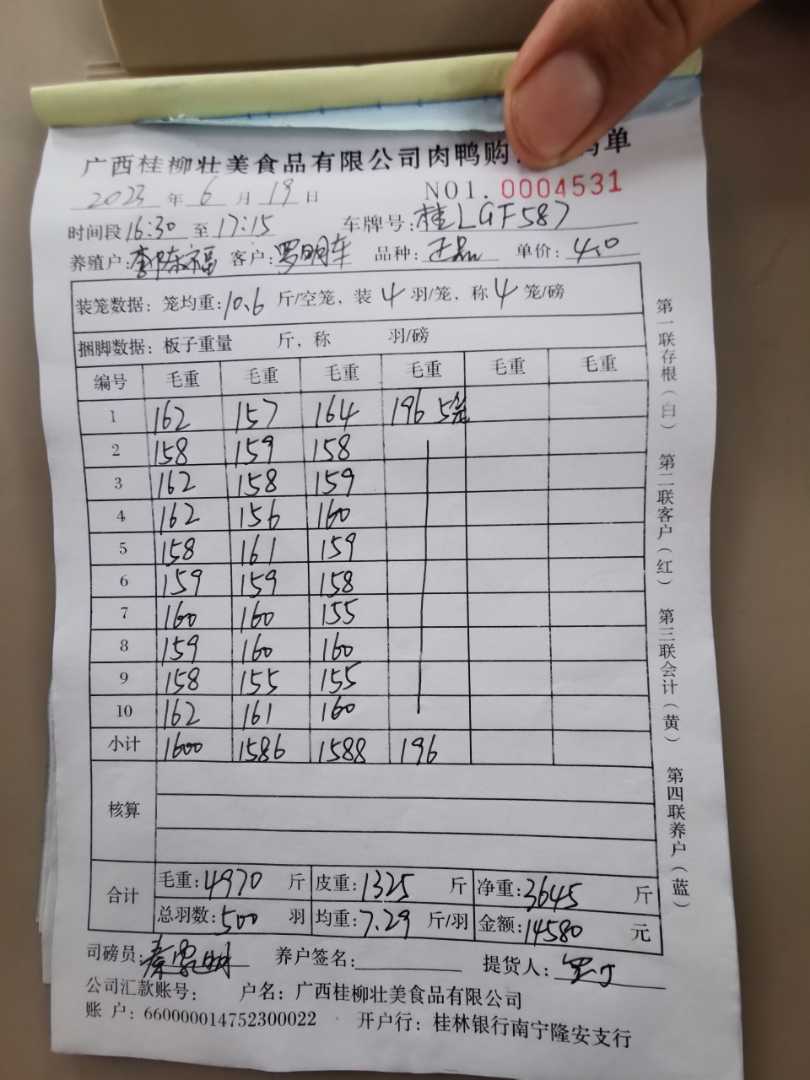 广西桂柳壮美食品有限公司肉鸭购 码单
2023 年 6 月 19 日 NO1. 0004531
时间段 16:30 至 17:15 车牌号: 桂LGF587
养殖户: 福 客户: 罗明车 品种: 单价: 4.0
装笼数据: 笼均重: 10.6 斤/空笼, 装 4 羽/笼, 称 4 笼/磅
捆脚数据: 板子重量 斤, 称 羽/磅
编号 毛重 毛重 毛重 毛重 毛重 毛重
1 162 157 164 196 5笼
2 158 159 158
3 162 158 159
4 162 156 160
5 158 161 159
6 159 159 158
7 160 160 155
8 159 160 160
9 158 155 155
10 162 161 160
小计 1600 1586 1588 196
核算
合计 毛重: 4970 斤 皮重: 1325 斤 净重: 3645 斤
总羽数: 500 羽 均重: 7.29 斤/羽 金额: 14580 元
司磅员: 秦 明 养户签名: 提货人:
公司汇款账号: 户名: 广西桂柳壮美食品有限公司
账 户: 660000014752300022 开户行: 桂林银行南宁隆安支行
第一联存根(白) 第二联客户(红) 第三联会计(黄) 第四联养户(蓝)